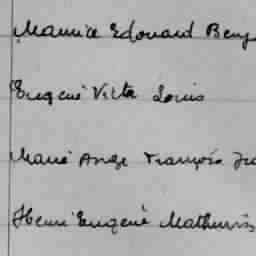 Maurice Edouard Benj
Eugené Victor Louis
Marie Ange François
Henri Eugené Mathurin